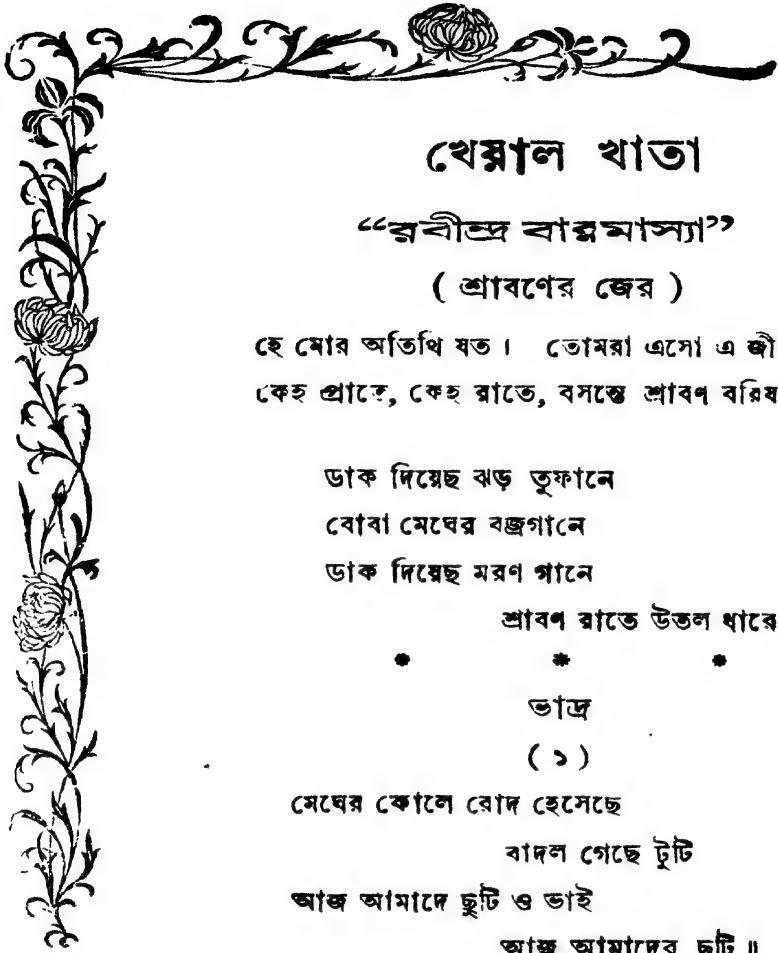 খেয়াল খাতা
“রবীন্দ্র বারমাস্যা”
( শ্রাবণের জের )
হে মোর অতিথি যত। তোমরা এসো এ জী
কেহ প্রাতে, কেহ রাতে, বসন্তে শ্রাবণ বরিষ
ডাক দিয়েছ ঝড় তুফানে
বোবা মেঘের বজ্রগানে
ডাক দিয়েছ মরণ গানে
শ্রাবণ রাতে উতল ধারে
* * *
ভাদ্র
( ১ )
মেঘের কোলে রোদ হেসেছে
বাদল গেছে টুটি
আজ আমাদে ছুটি ও ভাই
আজ আমাদের ছুটি॥